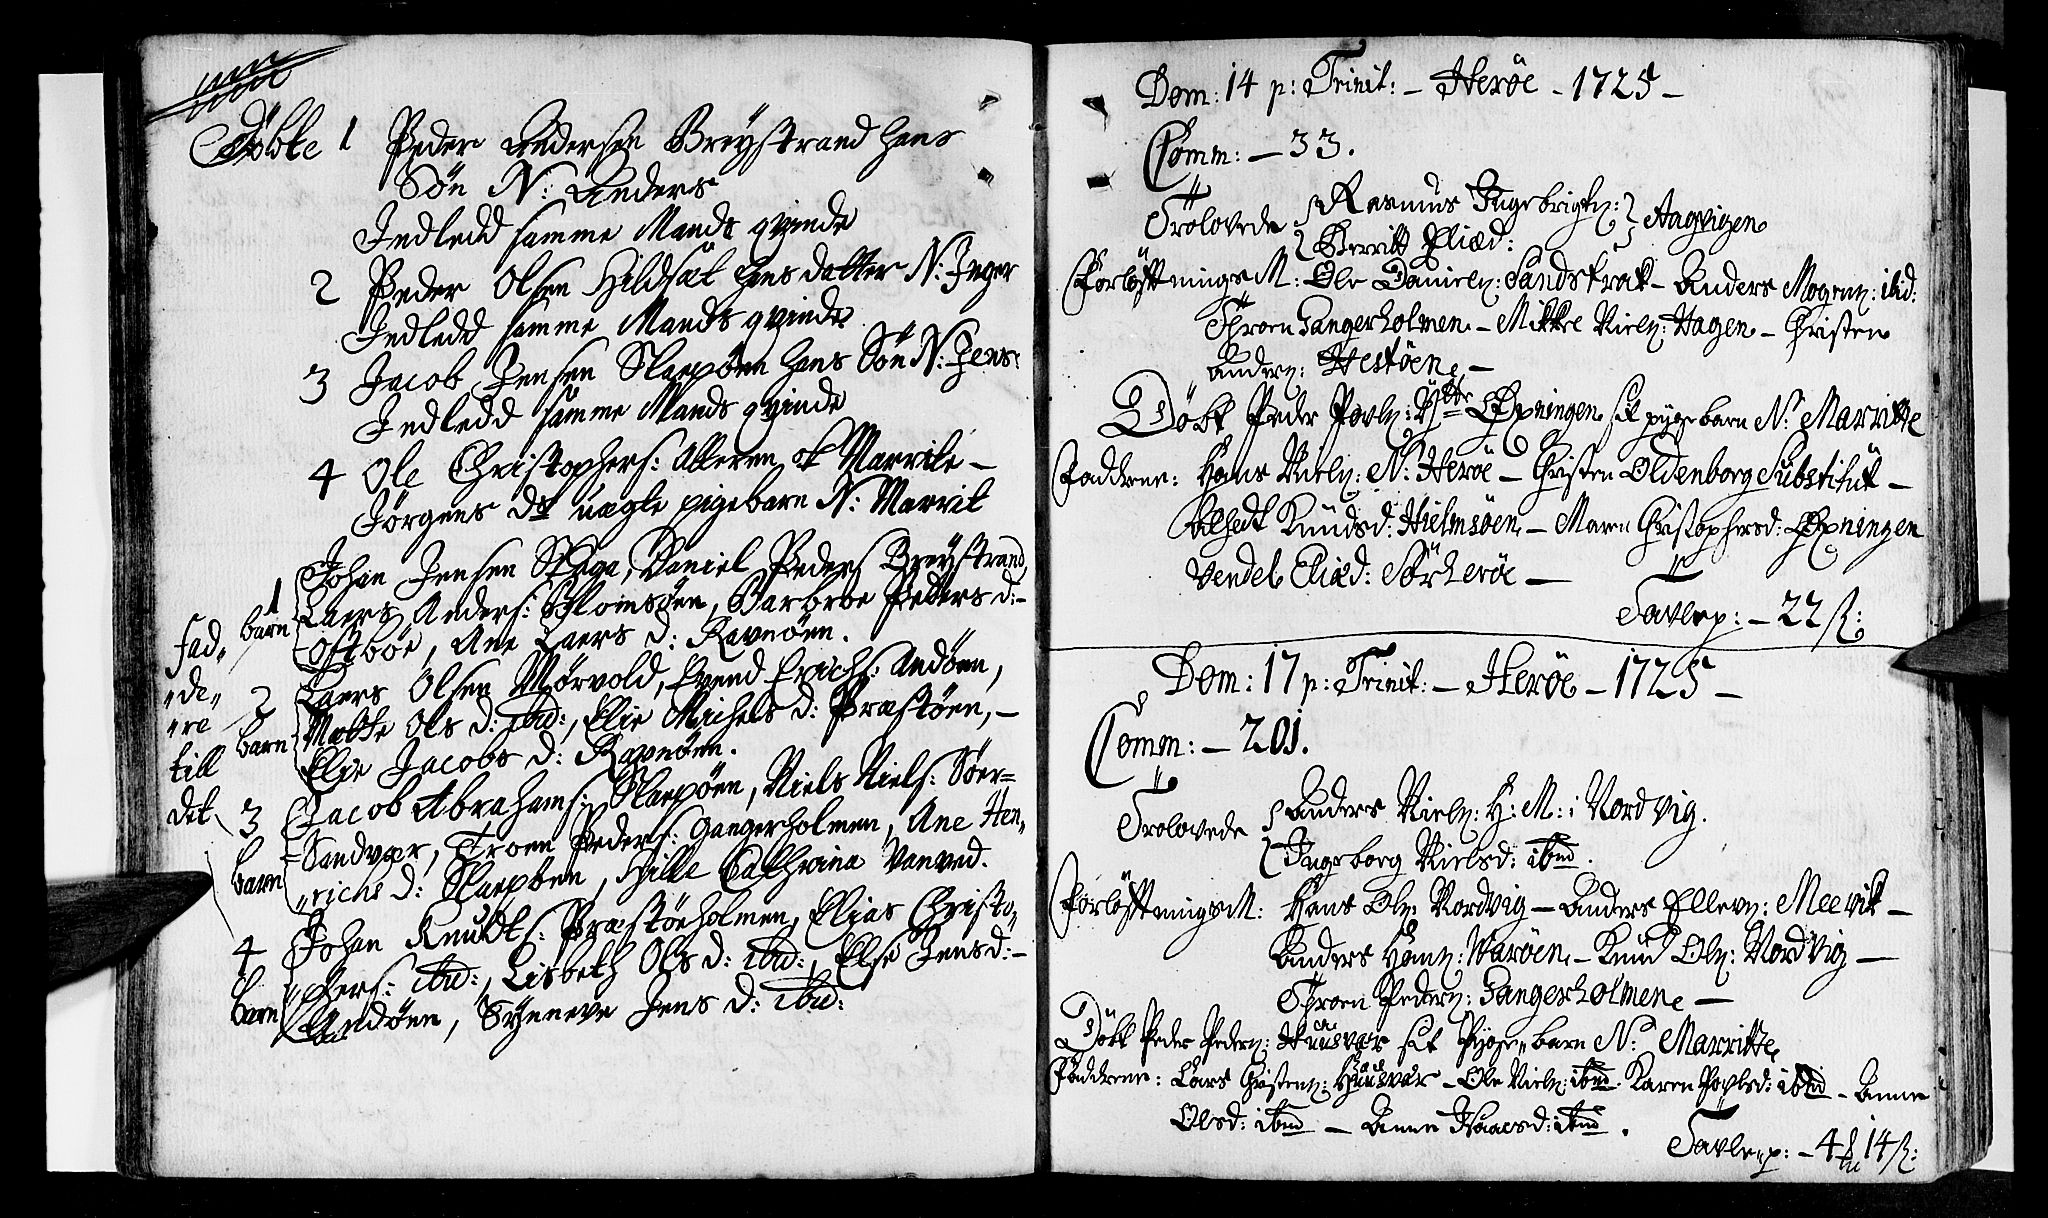 Döbte 1 Peder Andersen Breystrand hans
Sön N: Anders
Indledd samme Mands qvinde
2 Peder Olsen Hildsæt hans datter N: Inger
Indledd samme Mands qvinde
3 Jacob Jensen Slaapöen hans Sön N: Jens
Indledd samme Mands qvinde
4 Ole Christophers: Alteren ok Marrite –
Jörgens dr uægte pigebarn N: Marrit
Fad„de„re till det
1 barn Johan Jensen, Daniel Peders Breystrand,
Laers Anders: Blomsöen, Barbroe Peders d: –
Ostboe, Ane Laers d: Ravnöen.
2 barn Laers Olsen Mörvold, Evend Erichs: Andöen,
Mætte Ols d: ibid:, Elie Michels d: Præstöen, –
Elie Jacobs d: Ravnöen.
3 barn Jacob Abrahams: Slaapöen, Niels Niels: Söer=
Sandvær, Troen Peders: Gangerholmen, Ane Hen„
„richs d: Slaapöen, Sille Cathrina Vanved.
4 barn Johan Knudts: Præstöeholmen, Elias Christo„
„phers: ibid:, Lisbeth Ols d: ibid:, Else Jens d: –
Andöen, Synneve Jens d: ibid:
Dom: 14 p: Trinit: – Heröe – 1725 –
Comm: – 33.
Trolovede Rasmus Ingebrigtz: Aagvigen
Berritt Eliæd:
Forlöftnings M: Ole Danielz: Sandstrak – Anders Mogenz: ibid:
Throen Gangerholmen – Mikkel Nielz: Hagen – Christen
Anderz: Hestöen –
Döbt Peder Povlz: Yttre Öxningen sit pigebarn N: Marritte
Faddrene: Hans Nielz: N: Heröe – Christen Oldenborg Substitut –
Alhedt Knudsd: Hielmsöen – Maren Christophersd: Öxningen
Vendel Eliæd: Sörheröe –
Tavlep: – 22 ß:
Dom: 17 p: Trinit: – Heröe – 1725 –
Comm: – 201.
Trolovede Anders Nielz: H: M: i Nordvig.
Ingeborg Nielsd: ibid.
Forlöftnings M: Hans Olz: Nordvig – Anders Ellevz: Meevik –
Anders Hanz: Waröen – Knud Olz: Nordvig –
Throen Pederz: Gangerholmen –
Döbt Peder Pederz: Huusvær sit Pige„barn N: Marritte
Faddrene: Lars Christenz: Huusvær – Ole Nielz: ibid. Karen Povlsd: ibid – Anne
Olsd: ibid – Anne Haaesd: ibid.
Tavle„p: – 4 14 ß: